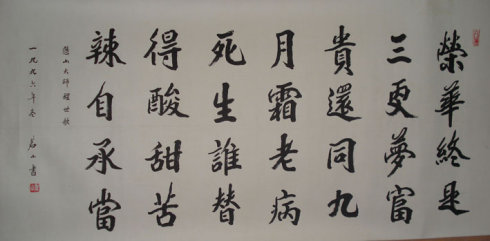 榮華終是
三更夢富
貴還同九
月霜老病
死生誰替
得酸甜苦
辣自承當
憨山大師醒世歌
一九九六年冬 山書